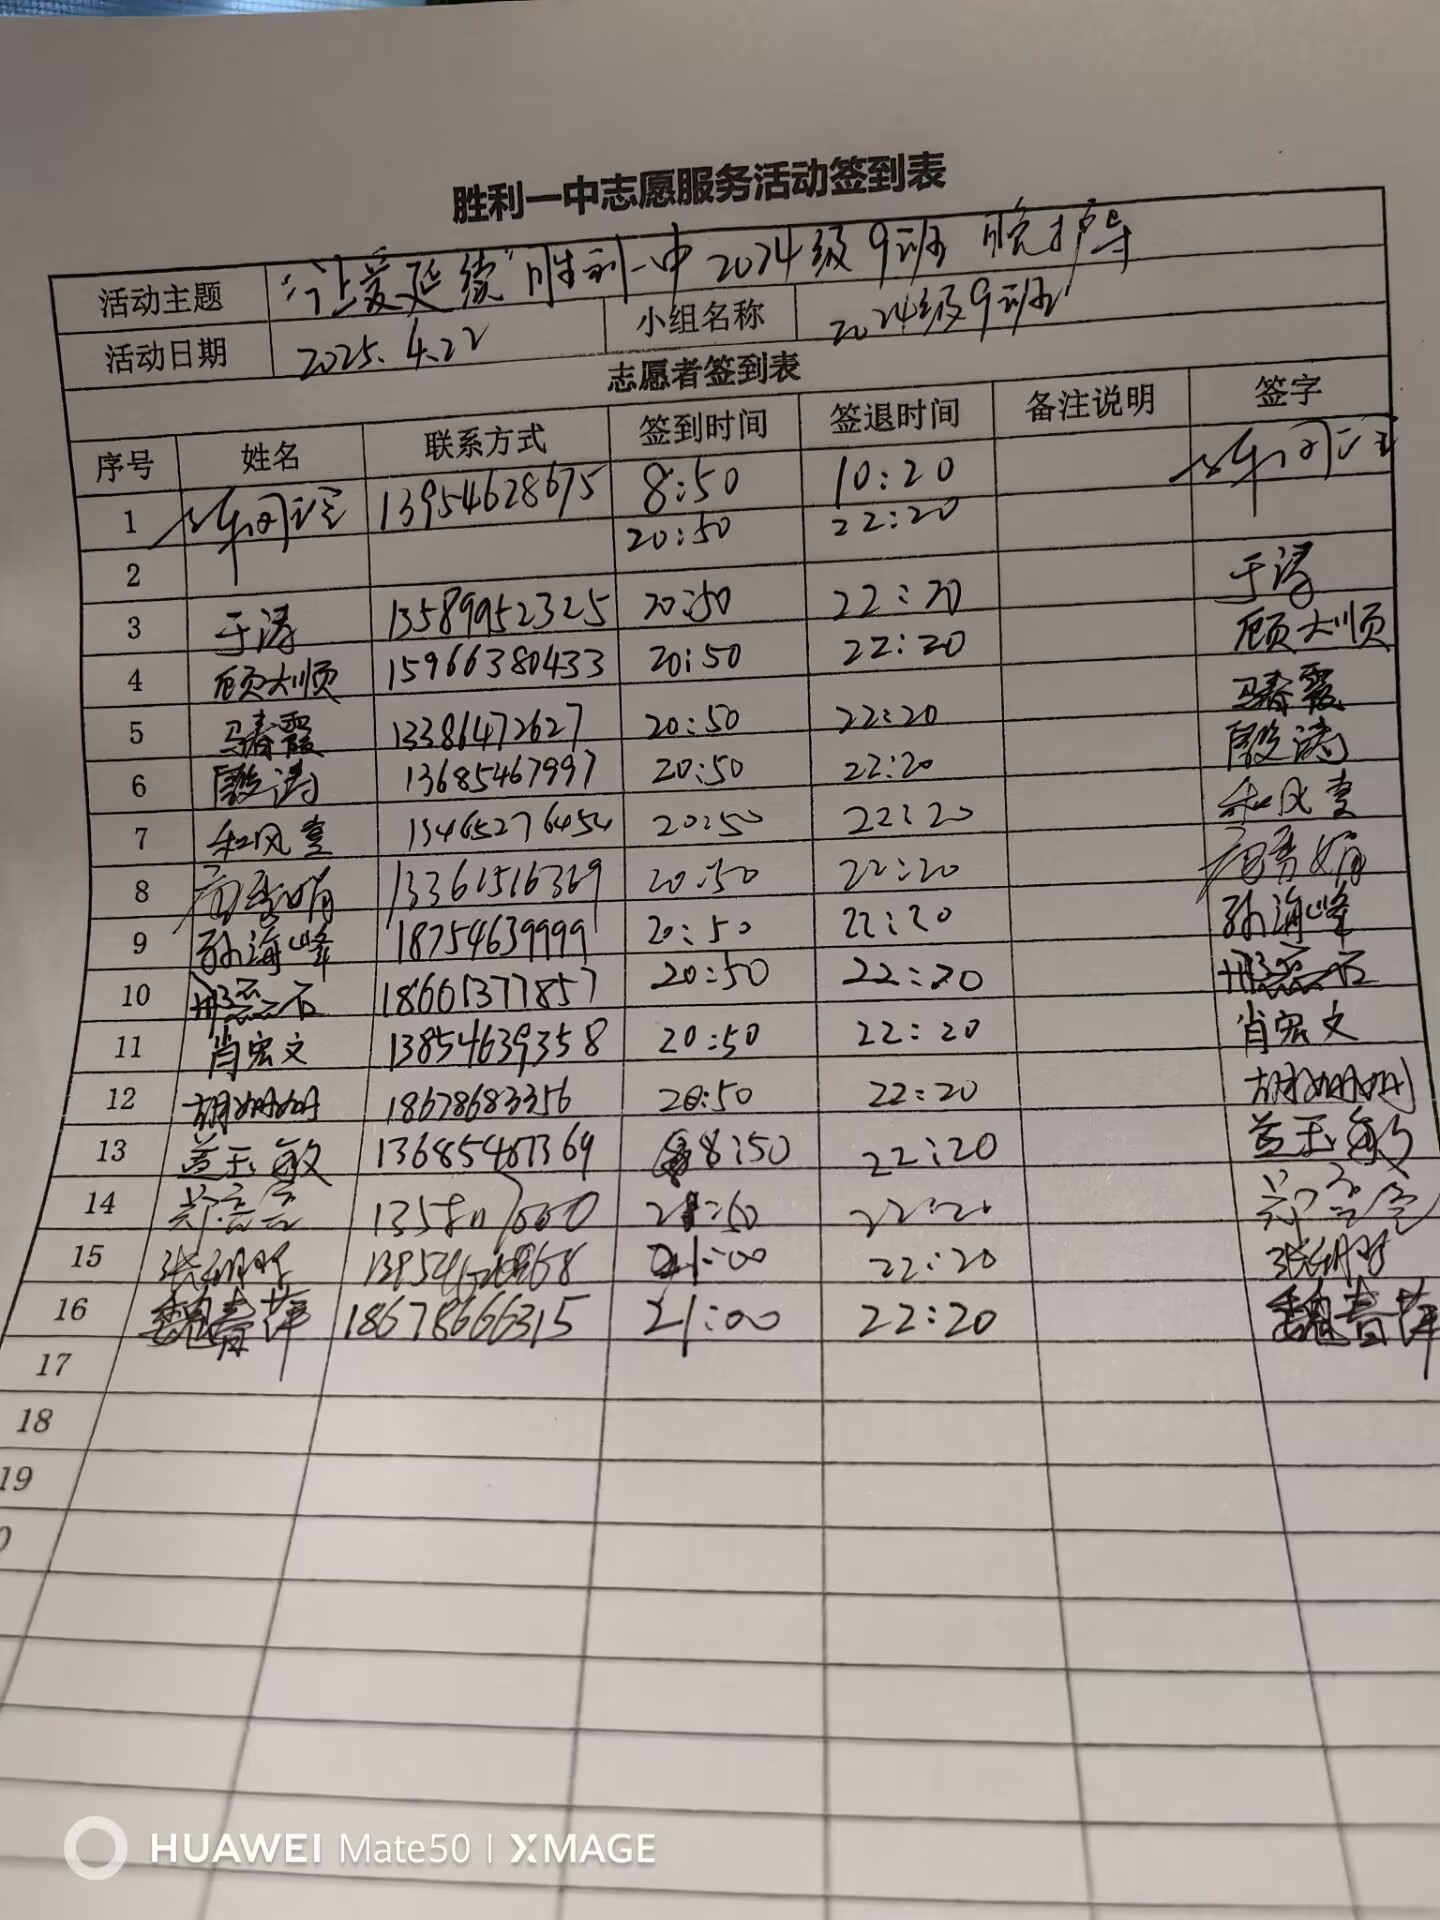 胜利一中志愿服务活动签到表
活动主题 “让爱延续”胜利一中2024级9班 晚护导
活动日期 2025.4.22 小组名称 2024级9班
志愿者签到表
序号 姓名 联系方式 签到时间 签退时间 备注说明 签字
1 13954628675 8:50 10:20
2 20:50 22:20
3 于涛 13589952325 20:50 22:20 于涛
4 顾大顺 15966380433 20:50 22:20 顾大顺
5 马春霞 13386472627 20:50 22:20 马春霞
6 殷涛 13685467997 20:50 22:20 殷涛
7 和风 13465276454 20:50 22:20 和风
8 13361516369 20:50 22:20
9 孙海峰 18754639999 20:50 22:20 孙海峰
10 18661377857 20:50 22:20
11 肖宏文 13854639358 20:50 22:20 肖宏文
12 胡姗姗 18678683356 20:50 22:20 胡姗姗
13 盖玉敏 8:50 22:20 盖玉敏
14 22:20
15 21:00 22:20
16 魏春萍 18678666315 21:00 22:20 魏春萍
17
18
19
HUAWEI Mate50 | XMAGE